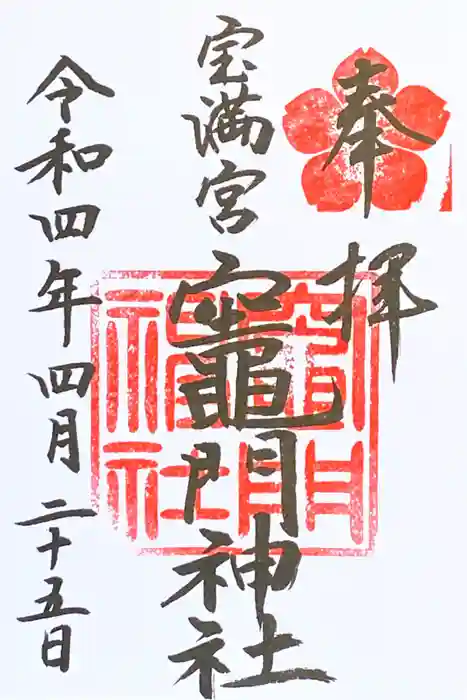 奉拝
宝満宮
竈門神社
令和四年四月二十五日